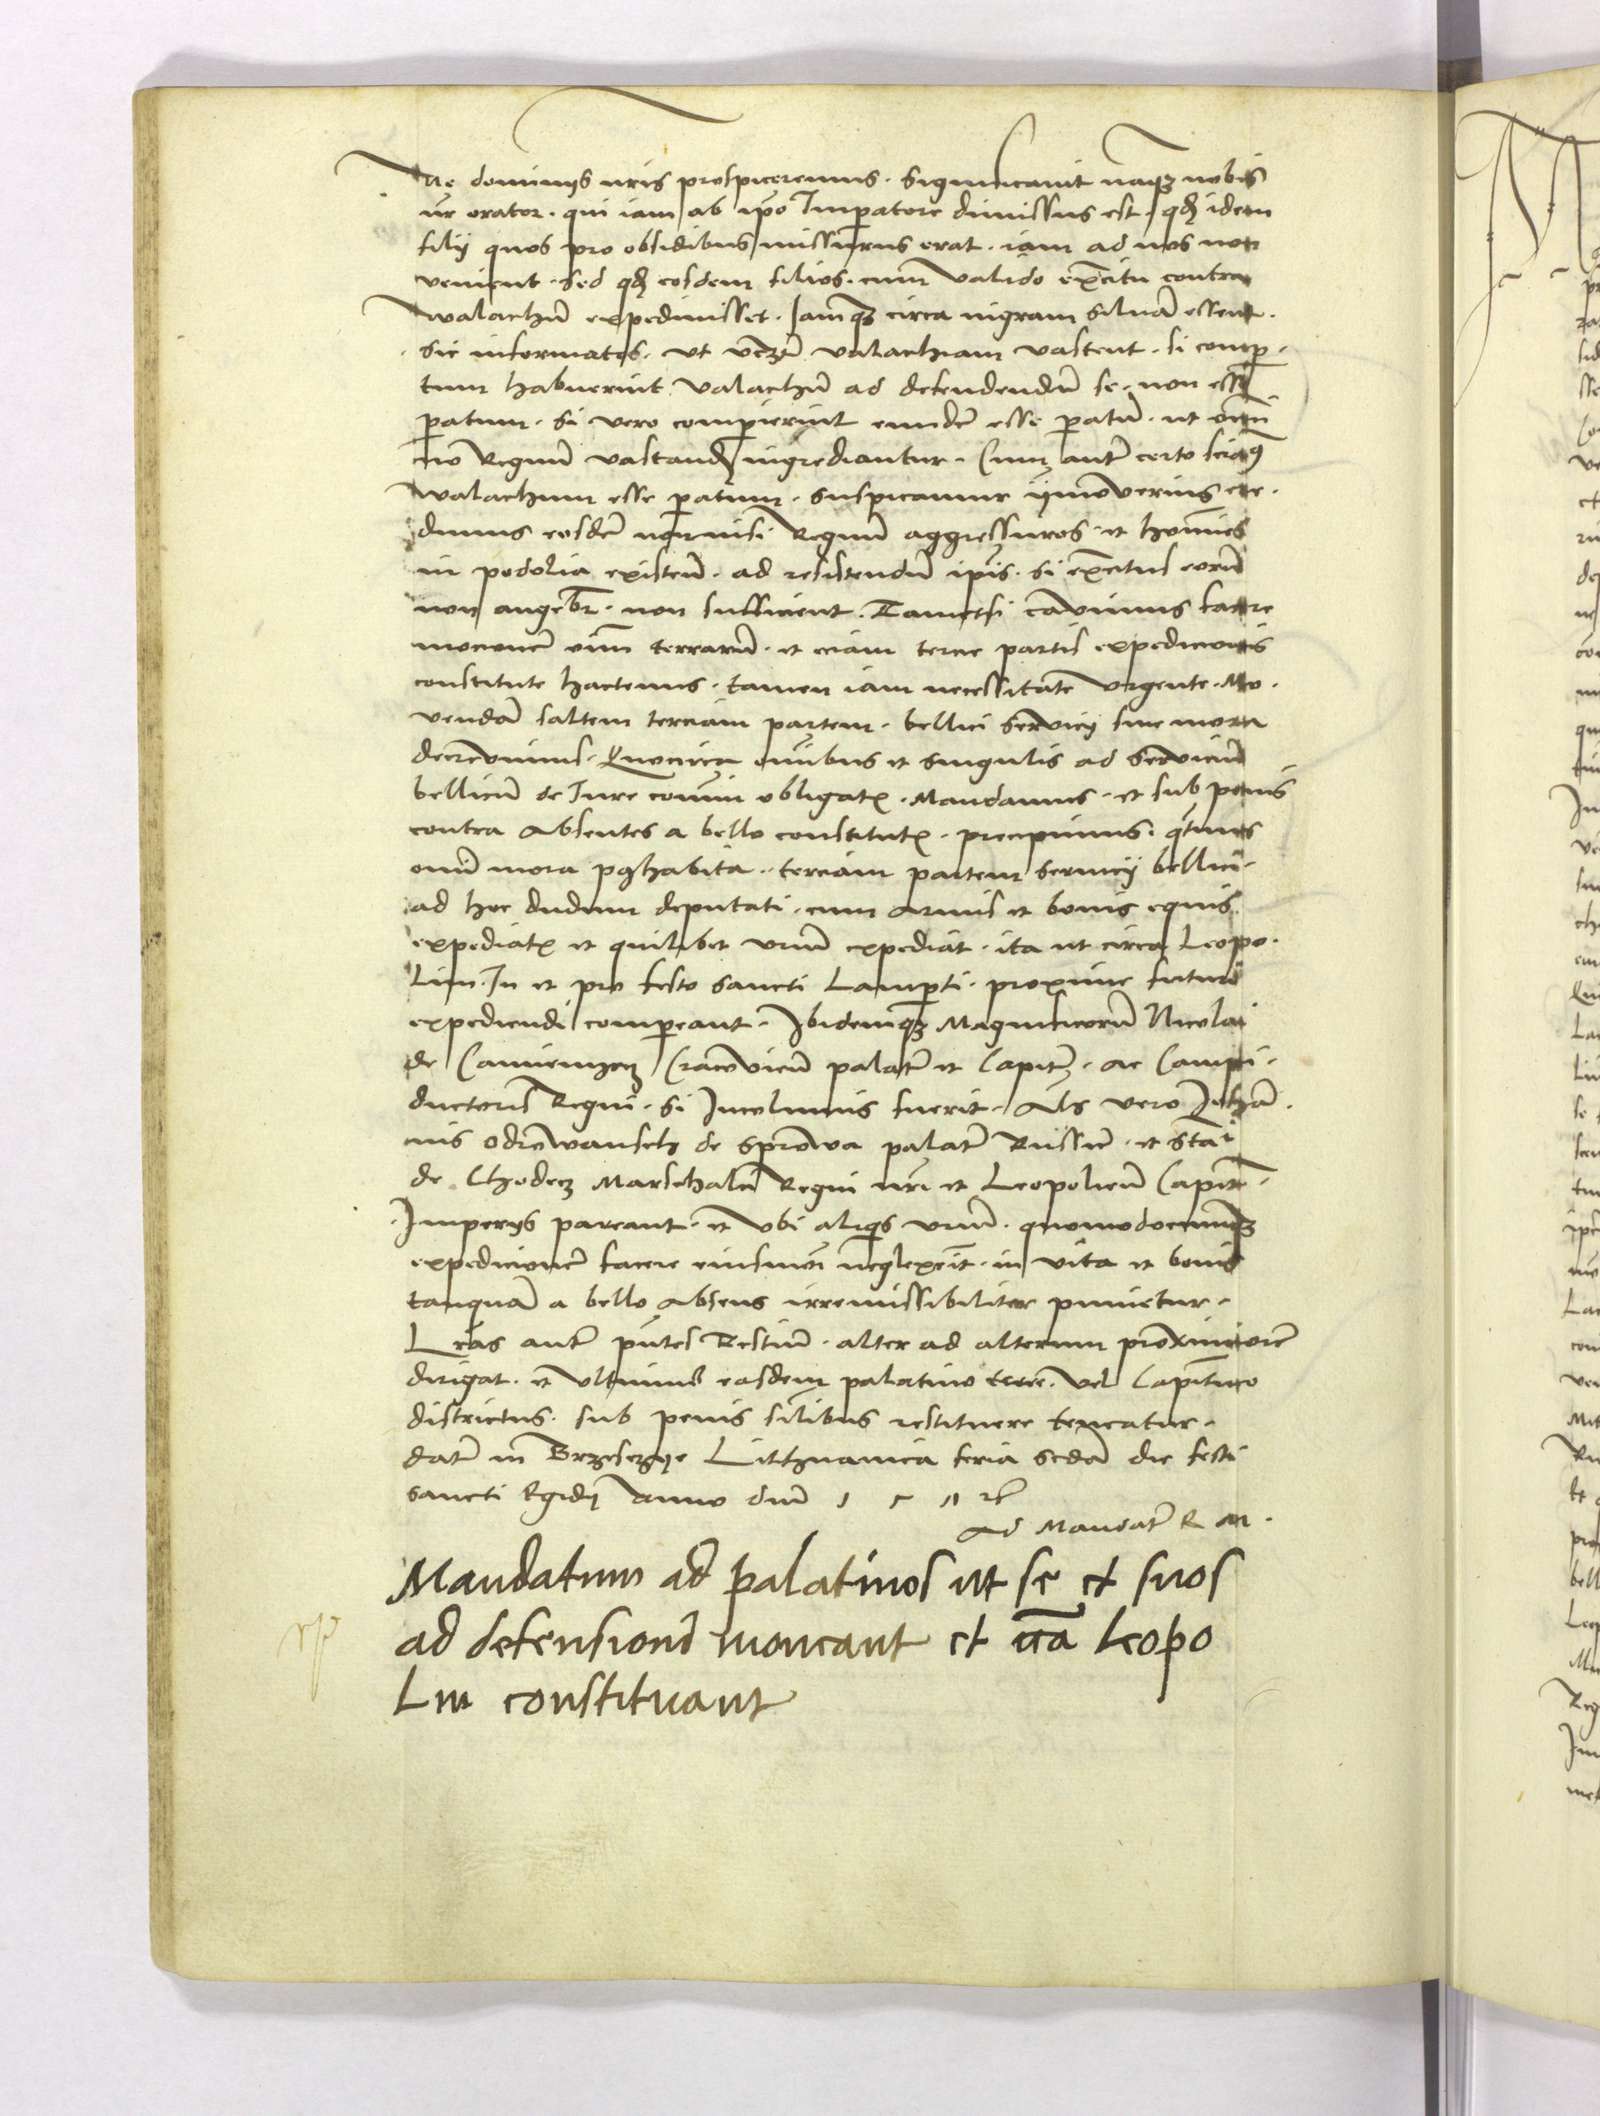 ac dominiis nris prospiceremus. Significavit namqz nobis
nr orator. qui iam ab ipo Imperatore dimissus est. qd idem
filii quos pro obsidibus missurus erat. iam ad nos non
venient. sed qd eosdem filios. cum valido exercitu contra
walachum expedivisset. Iamqz circa nigram silvam essent.
sic informatos. ut valachiam vastent. si comper
tum habuerint valachum ad defendendum se. non esse
paratum. Si vero compererint eundem esse paratum. ut omni
no Regnum vastandum ingrediantur. Cum autem certo sciamus
walachum esse paratum. suspicamur ymmo verius cre
dimus eosdem non nisi Regnum aggressuros. et homines
in podolia existen. ad resistendum ipsis. si exercitus eorum
non augebitur. non sufficient. Tametsi cavimus facere
mocionem omnium terrarum. et eciam tercie partis expedicionis
constitute hactenus. tamen iam necessitate urgente. Mo
vendam saltem terciam partem. bellici servicii sine mora
decrevimus. Quocirca omnibus et singulis ad servicium
bellicum de Iure communi obligatis. Mandamus. et sub penis
contra absentes a bello constitutis. precipimus. quatinus
omni mora posthabita. terciam partem servicii bellici.
ad hoc dudum deputati. cum armis et bonis equis
expediatis et quilibet vestrum expediat. ita ut circa Leopo
lim. In et pro festo sancti Lamperti. proxime futuro
expediendi compareant. Ibidemqz Magnificorum Nicolai
de Camienyecz Cracovien palatini et Capitanei. ac Campi
ductoris Regni. si Incolumis fuerit. Als vero Iohan
nis odrowansch de sprowa palatini Russie. et Stai
de Chodecz Marschalci Regni nri et Leopolien Capitanei.
Imperiis pareant. et ubi aliquis vestrum. quomodocumqz
expedicionem facere eiusmodi neglexerit. in vita et bonis
tanquam a bello absens irremissibiliter punietur.
Lras autem pntes Restium. alter ad alterum proximiorem
dirigat. et ultimus easdem palatino terre. vel Capitaneo
districtus. sub penis similibus restituere teneatur.
datum in Brzesczye Litthuanica feria secunda die festi
sancti Egidii Anno dni
Ad Mandatum R M.
Mandatum ad palatinos ut se et suos
ad defensionem moneant et circa Leopo
lim constituant